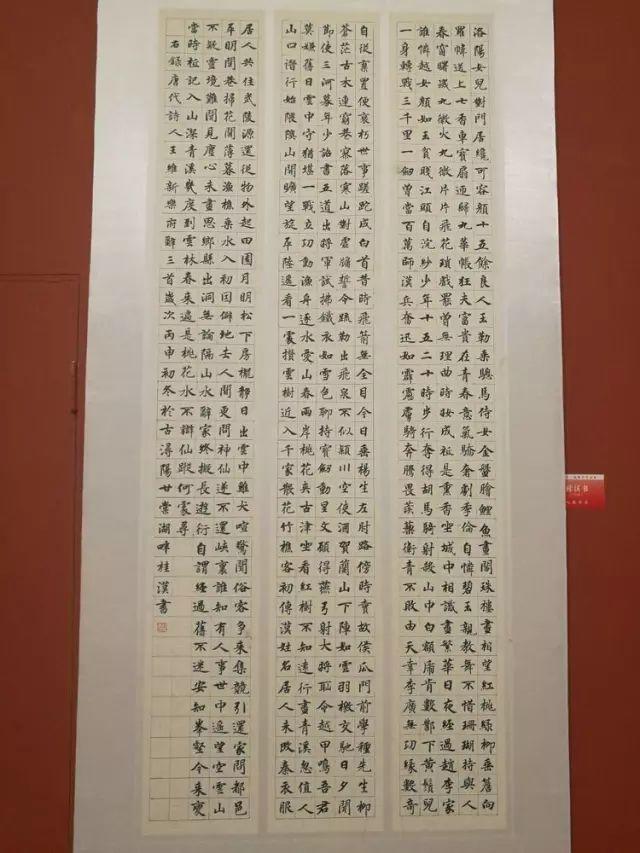 洛陽女兒對門居纔可容顏十五餘良人玉勒乘驄馬侍女金盤膾鯉魚畫閣珠樓畫相望紅桃綠柳垂簷向
羅幃送上七香車寶扇迎歸九華帳狂夫富貴在青春意氣驕奢劇季倫自憐碧玉親教舞不惜珊瑚持與人
春窗曙滅九微火九微片片飛花瑣戲罷曾無理曲時妝成祗是熏香坐城中相識盡繁華日夜經過趙李家
誰憐越女顏如玉貧賤江頭自浣紗少年十五二十時步行奪得胡馬騎射殺山中白額虎肯數鄴下黃鬚兒
一身轉戰三千里一劍曾當百萬師漢兵奮迅如霹靂虜騎奔騰畏蒺藜衛青不敗由天幸李廣無功緣數奇
自從棄置便衰朽世事蹉跎成白首昔時飛箭無全目今日垂楊生左肘路傍時賣故侯瓜門前學種先生柳
蒼茫古木連窮巷寥落寒山對虛牖誓令疏勒出飛泉不似潁川空使酒賀蘭山下陣如雲羽檄交馳日夕聞
節使三河募年少詔書五道出將軍試拂鐵衣如雪色聊持寶劍動星文願得燕弓射大將恥令越甲鳴吾君
莫嫌舊日雲中守猶堪一戰立功勳漁舟逐水愛山春兩岸桃花夾古津坐看紅樹不知遠行盡青溪忽值人
山口潛行始隈隩山開曠望旋平陸遙看一處攢雲樹近入千家散花竹樵客初傳漢姓名居人未改秦衣服
居人共住武陵源還從物外起田園月明松下房櫳靜日出雲中雞犬喧驚聞俗客爭來集競引還家問都邑
平明閭巷掃花開薄暮漁樵乘水入初因僻地去人間更問神仙遂不還峽裏誰知有人事世中遙望空雲山
不疑靈境難聞見塵心未盡思鄉縣出洞無論隔山水辭家終擬長遊衍自謂經過舊不迷安知峯壑今來變
當時祗記入山深青溪幾度到雲林春來遍是桃花水不辯仙蹤何處尋
右錄唐代詩人王維新樂府辭三首歲次丙申初冬於古潯陽甘棠湖畔桂漢書